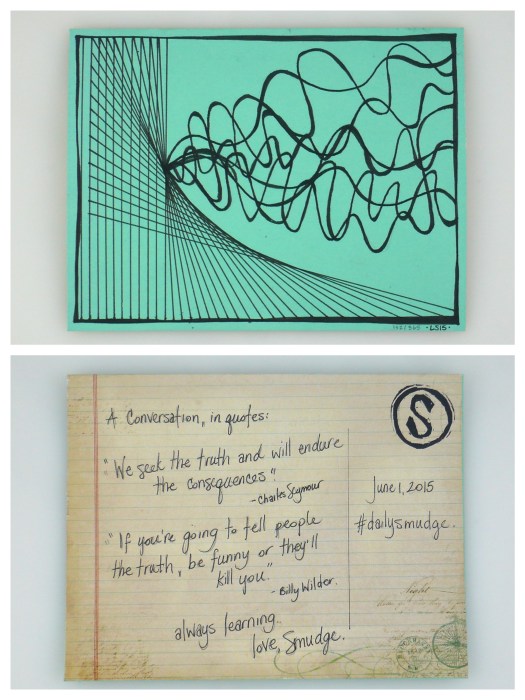 ·LS15·
S
A Conversation, in quotes:
"We seek the truth and will endure
the consequences."
-Charles Seymour
"If you're going to tell people
the truth, be funny or they'll
kill you."
-Billy Wilder.
always learning.
love, Smudge.
June 1, 2015
#dailysmudge.